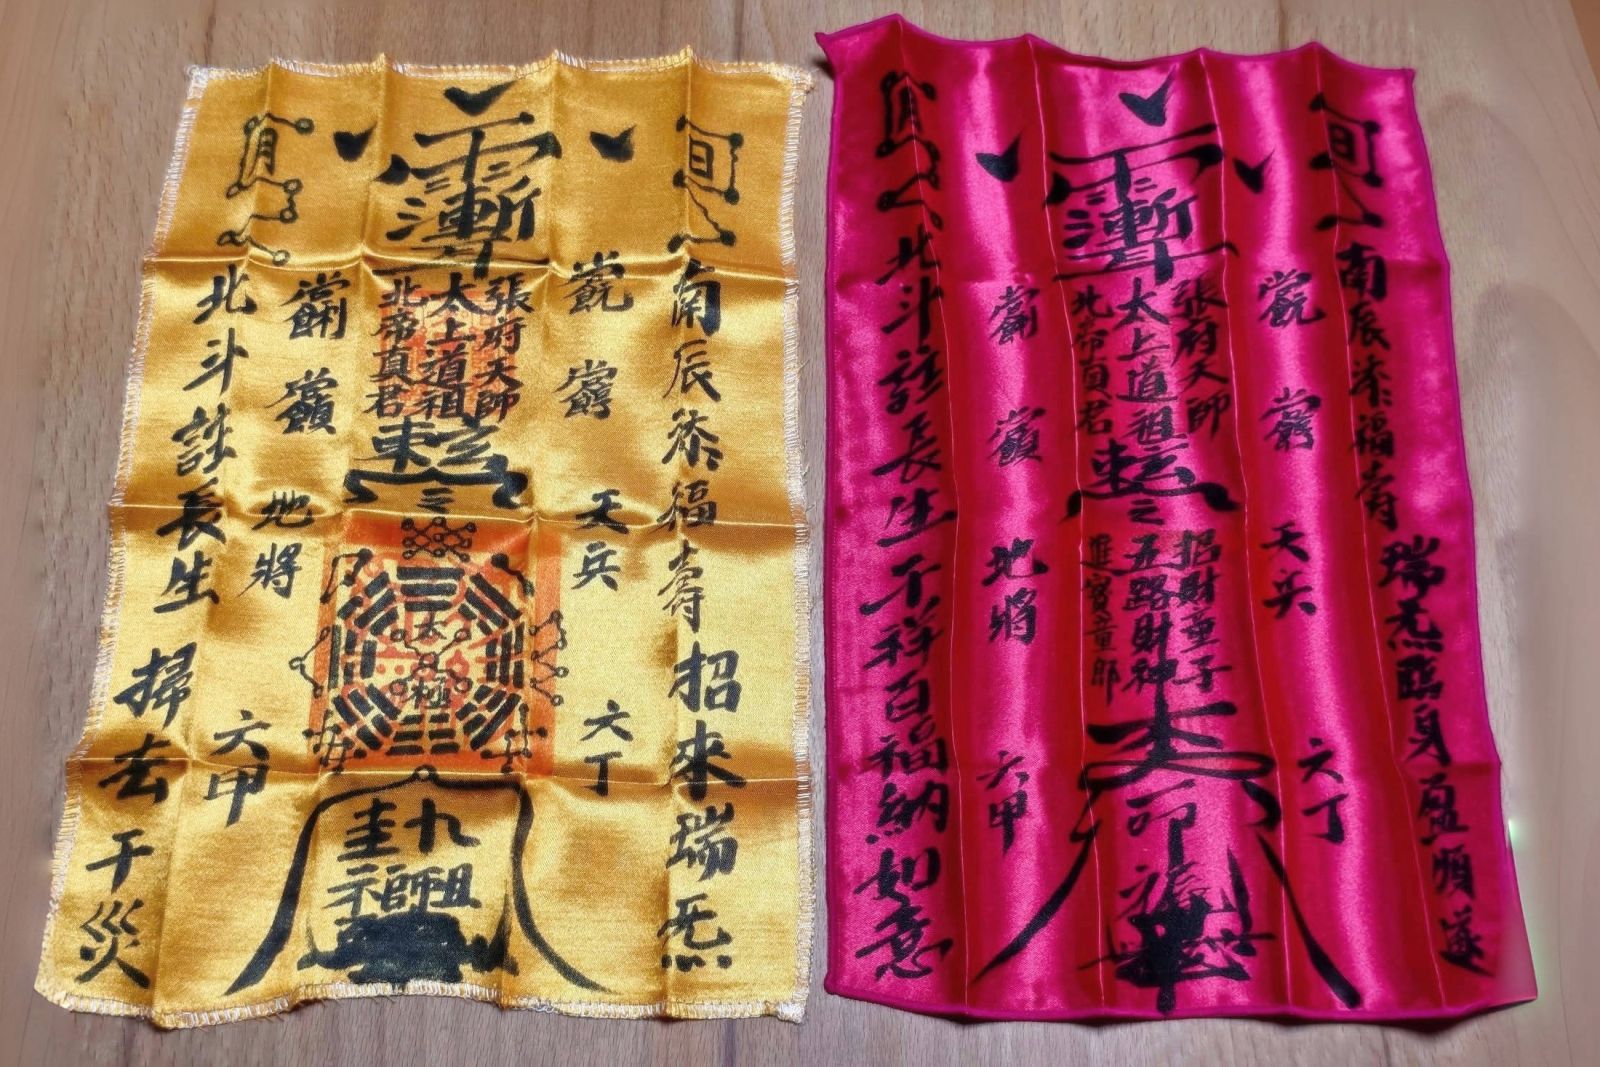 月
日
北斗註長生掃去千災
北帝真君
太上道祖
張府天師
地將
六甲
天兵
六丁
南辰添福壽招來瑞炁
太極
祖師
月
日
北斗註長生千祥百福納如意
北帝真君
太上道祖
張府天師
地將
六甲
進寶童郎
五路財神
招財童子
天兵
六丁
南辰添福壽瑞炁臨身盈順遂